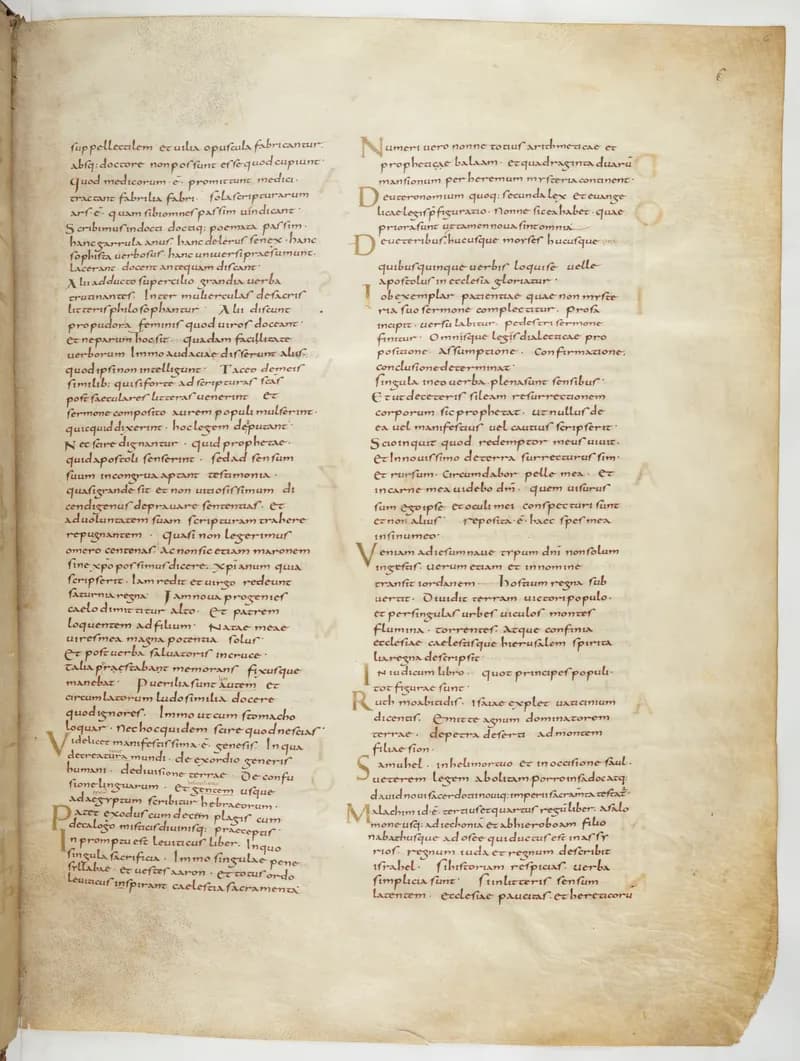 suppellectilem et uilia opuscula fabricantur·
absq; doctore non possunt esse quod cupiunt·
Quod medicorum ·ē· promittunt medici·
tractant fabrilia fabri· sola scripturarum
ars ·ē· quam sibi omnes passim uindicant·
Scribimus indocti doctiq; poemata passim·
hanc garrula anus· hanc delerus senex· hanc
sophista uerbosus· hanc uniuersi praesumunt·
lacerant docent antequam discant·
Alii adducto supercilio grandia uerba
trutinantes· Inter mulierculas de sacris
litteris philosophantur· Alii discunt
pro pudora feminis quod uiros doceant·
Et ne parum hoc sit· quadam facilitate
uerborum Immo audaciae disserunt aliis·
quod ipsi non intellegunt· Taceo de meis
similib; qui si forte ad scripturas scās
post saeculares litteras uenerint· Et
sermone composito aurem populi mulserint·
quicquid dixerint· hoc legem dei putant·
Nec scire dignantur· quid prophetae·
quid apostoli senserint· sed ad sensum
suum incongrua aptant testimonia·
quasi grande sit et non uitiosissimum di
cendi genus deprauare sententias· Et
ad uoluntatem suam scripturam trahere
repugnantem· Quasi non legerimus
omero centonas· Ac non sic etiam maronem
sine xpo possimus dicere· xpianum quia
scripserit· Iam redit et uirgo redeunt
saturnia regna· Iam noua progenies
caelo dimittitur alto· Et patrem
loquentem ad filium· Natae meae
uires mea magna potentia solus·
Et post uerba saluatoris in cruce·
Talia praestabant memorans fixusque
manebat· Puerilia sunt autem et
circumlatorum ludo similia docere
quod ignores· Immo ut cum stomacho
loquar· Nec hoc quidem scire quod nescias·
Videlicet manifestissima ·ē· genesis· In qua
de creatura mundi· de exordio generis
humani· de diuisione terrae· De confu
sione linguarum· Et gentem usque
ad aegyptum scribitur hebraeorum·
Patet exodus cum decem plagis cum
decalogo misticis diuinisq; praeceptis·
In promptu est leuiticus liber· In quo
singula sacrificia· Immo singulae pene
syllabae· et uestes aaron· et totus ordo
leuiticus inspirant caelestia sacramenta·
Numeri uero nonne totius arithmeticae et
propheticae balaam· et quadraginta duarū
mansionum per heremum mysteria continent·
Deuteronomium quoq; secunda lex et euange
licae legis p̄figuratio· Nonne sic ea habet· quae
priora sunt ut tamen noua sint omnia
Deueteribus· hucusque moyses hucusque
quibus quinque uerbis loqui se uelle
apostolus in ecclesia gloriatur·
Iob exemplar patientiae quae non myste
ria suo sermone complectitur· Prosa
incipit· uersu labitur· pedestri sermone
finitur· Omnisque legis dialecticae pro
positione· Assumptione· Confirmatione·
conclusione determinat·
singula in eo uerba plena sunt sensibus·
Et ut de ceteris sileam resurrectionem
corporum sic prophetat· ut nullus de
ea uel manifestius uel cautius scripserit·
Scio inquit quod redemptor meus uiuit·
et In nouissimo de terra surrecturus sim·
Et rursum· circumdabor pelle mea· Et
in carne mea uidebo dm̄· quem uisurus
sum ego ipse et oculi mei conspecturi sunt
et non alius· reposita ·ē· haec spes mea
in sinu meo·
Veniam ad iesum naue typum dn̄i non solum
in gestis· uerum etiam et in nomine
transit iordanem hostium regna sub
uertit· Diuidit terram uictori populo·
et per singulas urbes uiculos montes
flumina· torrentes· Atque confinia
ecclesiae caelestisque hierusalem spirita
lia regna descripsit·
In iudicum libro· quot principes populi·
tot figurae sunt·
Ruth moabitidis· isaiae explet uaticinium
dicentis· Emitte agnum dominatorem
terrae· de petra deserti ad montem
filiae sion·
Samuhel· in heli mortuo et in occiso saul·
ueterem legem abolitam porro in sadoc atq;
dauid noui sacerdotii nouiq; imperii sacramta testat·
Malachim id ·ē· tertius et quartus regū liber· a salo
mone usq; ad iechoniā et ab hieroboam filio
nabath usque ad osee qui ductus est in assy
rios· regnum iuda et regnum describit
israhel· si historiam respicias· uerba
simplicia sunt· si in litteris sensum
latentem· ecclesiae paucitas· et hereticorū